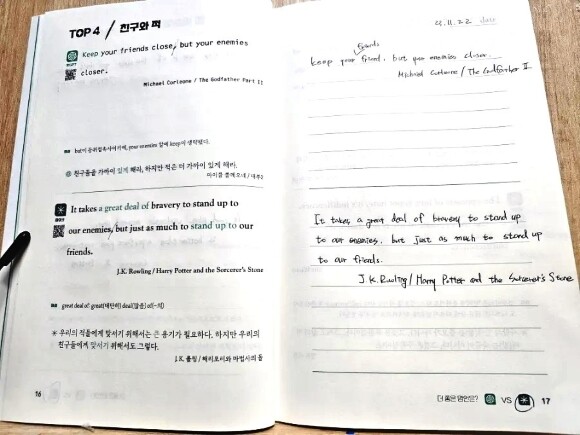 TOP 4 / 친구와 적
Keep your friends close, but your enemies
closer.
Michael Corleone / The Godfather Part II
but이 등위접속사이기에, your enemies 앞에 keep이 생략됐다.
친구들을 가까이 있게 해라, 하지만 적은 더 가까이 있게 해라.
마이클 콜레오네 / 대부2
It takes a great deal of bravery to stand up to
our enemies, but just as much to stand up to our
friends.
J.K. Rowling / Harry Potter and the Sorcerer's Stone
great deal of: great(대단히) deal(많음) of(~의)
우리의 적들에게 맞서기 위해서는 큰 용기가 필요하다. 하지만 우리의
친구들에게 맞서기 위해서도 그렇다.
J.K. 롤링 / 해리포터와 마법사의 돌
16
4.11.22 date
friends
keep your friend, but your enemies closer.
Michael Corleone / The Godfather II
It takes a great deal of bravery to stand up
to our enemies, but just as much to stand up
to our friends.
J.K. Rowling / Harry Potter and the Sorcerer's Stone
더 좋은 명언은? VS 17